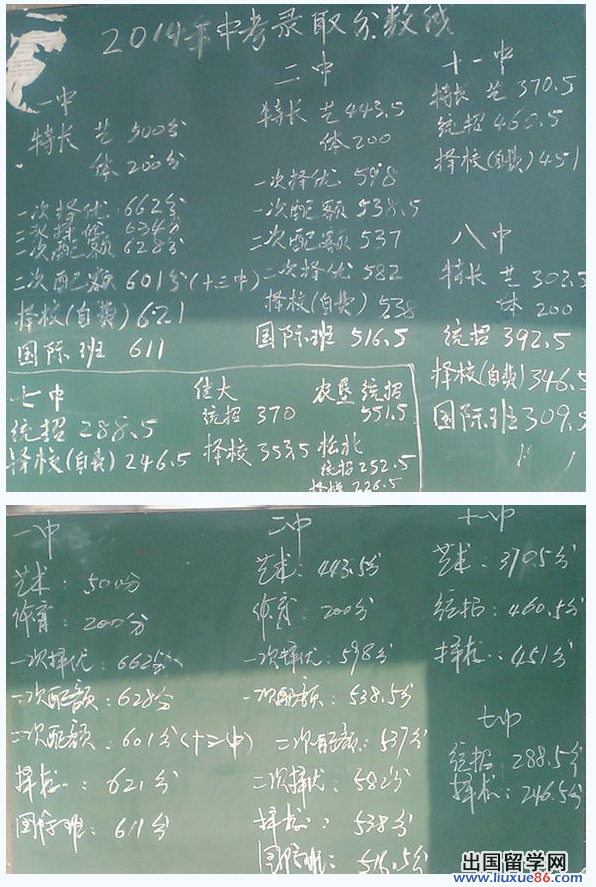 2014年中考录取分数线
一中
特长 艺 500分
体 200分
一次择优 662分
二次择优 634分
一次配额 628分
二次配额 601分(十三中)
择校(自费) 621
国际班 611
二中
特长 艺 443.5
体 200
一次择优 598
一次配额 538.5
二次配额 537
二次择优 582
择校(自费) 538
国际班 516.5
十一中
特长 艺 370.5
统招 460.5
择校(自费) 451
八中
特长 艺 302.5
体 200
统招 392.5
择校(自费) 346.5
国际班 309.5
七中
统招 288.5
择校(自费) 246.5
佳大
统招 370
择校 353.5
农垦 统招
551.5
松北
统招 252.5
择校 226.5
一中
艺术: 500分
体育: 200分
一次择优: 662分
一次配额: 628分
二次配额: 601分(十三中)
择校: 621分
国际班: 611分
二中
艺术: 443.5分
体育: 200分
一次择优: 598分
一次配额: 538.5分
二次配额: 537分
二次择优: 582分
择校: 538分
国际班: 516.5分
十一中
艺术: 370.5分
统招: 460.5分
择校: 451分
七中
统招: 288.5分
择校: 246.5分
出国留学网
www.liuxue86.com